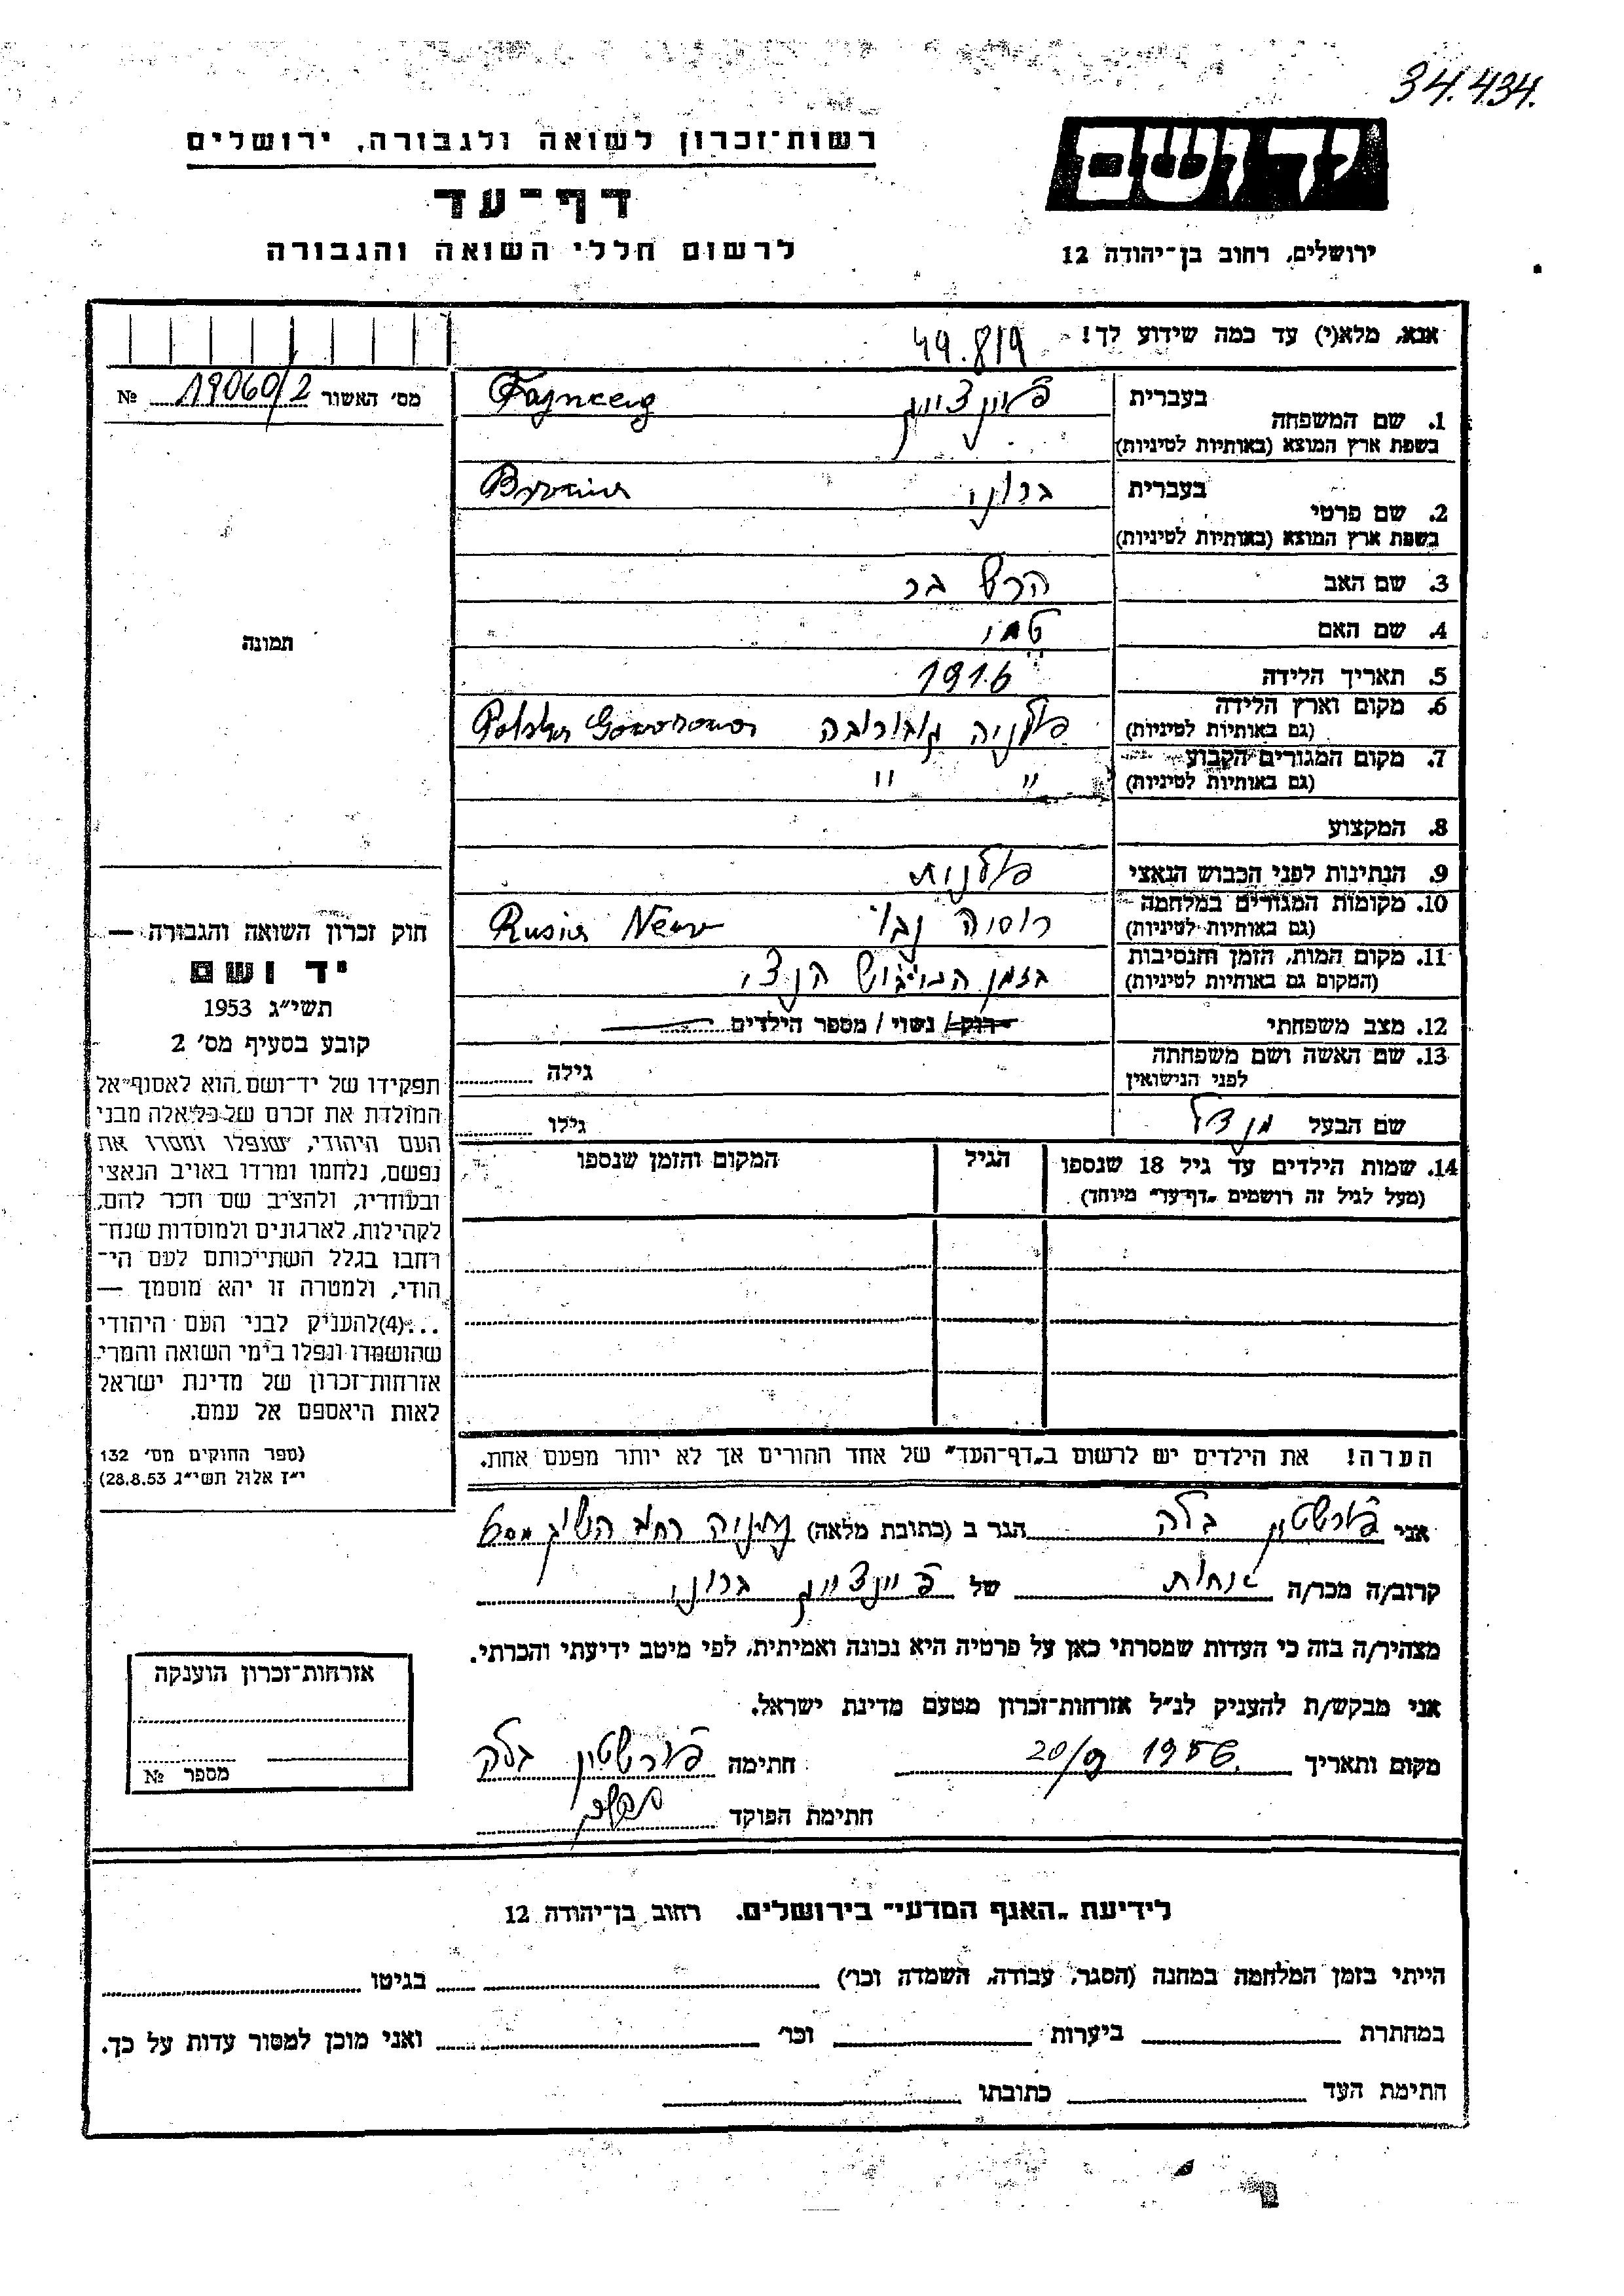 34.434.
רשות־זכרון לשואה ולגבורה, ירושלים
דף־עד
לרשום חללי השואה והגבורה
יד ושם
ירושלים, רחוב בן־יהודה 12
אנא, מלא(י) עד כמה שידוע לך!
מס׳ האשור 19060/2 №
1. שם המשפחה
בעברית
בשפת ארץ המוצא (באותיות לטיניות)
2. שם פרטי
בעברית ברוני
בשפת ארץ המוצא (באותיות לטיניות)
3. שם האב הרש בר
4. שם האם
5. תאריך הלידה 1916
6. מקום וארץ הלידה
(גם באותיות לטיניות)
פולניה גובורובה
7. מקום המגורים הקבוע
(גם באותיות לטיניות)
" "
8. המקצוע
9. הנתינות לפני הכבוש הנאצי פולנית
10. מקומות המגורים במלחמה
(גם באותיות לטיניות)
רוסיה
11. מקום המות, הזמן והנסיבות
(המקום גם באותיות לטיניות)
בזמן הכיבוש הנצי
12. מצב משפחתי רוק/ נשוי / מספר הילדים
13. שם האשה ושם משפחתה
לפני הנישואין
גילה
שם הבעל מנדל
גילו
14. שמות הילדים עד גיל 18 שנספו
(מעל לגיל זה רושמים „דף־עד״ מיוחד)
הגיל
המקום והזמן שנספו
הערה! את הילדים יש לרשום ב„דף־העד״ של אחד ההורים אך לא יותר מפעם אחת.
תמונה
חוק זכרון השואה והגבורה —
יד ושם
תשי״ג 1953
קובע בסעיף מס׳ 2
תפקידו של יד־ושם הוא לאסוף אל
המולדת את זכרם של כל אלה מבני
העם היהודי, שנפלו ומסרו את
נפשם, נלחמו ומרדו באויב הנאצי
ובעוזריו, ולהציב שם וזכר להם,
לקהילות, לארגונים ולמוסדות שנח־
רחבו בגלל השתייכותם לעם הי־
הודי, ולמטרה זו יהא מוסמך —
...(4)להעניק לבני העם היהודי
שהושמדו ונפלו בימי השואה והמרי
אזרחות־זכרון של מדינת ישראל
לאות היאספם אל עמם.
(ספר החוקים מס׳ 132
י״ז אלול תשי״ג 28.8.53)
אני פורשטין בלה הגר ב (כתובת מלאה) נתניה רחוב
קרוב/ה מכר/ה אחות של פיינצייג ברוני
מצהיר/ה בזה כי העדות שמסרתי כאן על פרטיה היא נכונה ואמיתית, לפי מיטב ידיעתי והכרתי.
אני מבקש/ת להעניק לנ״ל אזרחות־זכרון מטעם מדינת ישראל.
מקום ותאריך 20/9 1956 חתימה פורשטין בלה
חתימת הפוקד
אזרחות־זכרון הוענקה
מספר №
לידיעת „האגף המדעי״ בירושלים. רחוב בן־יהודה 12
הייתי בזמן המלחמה במחנה (הסגר, עבודה, השמדה וכר׳) בגיטו
במחתרת ביערות וכר׳ ואני מוכן למסור עדות על כך.
חתימת העד כתובתו